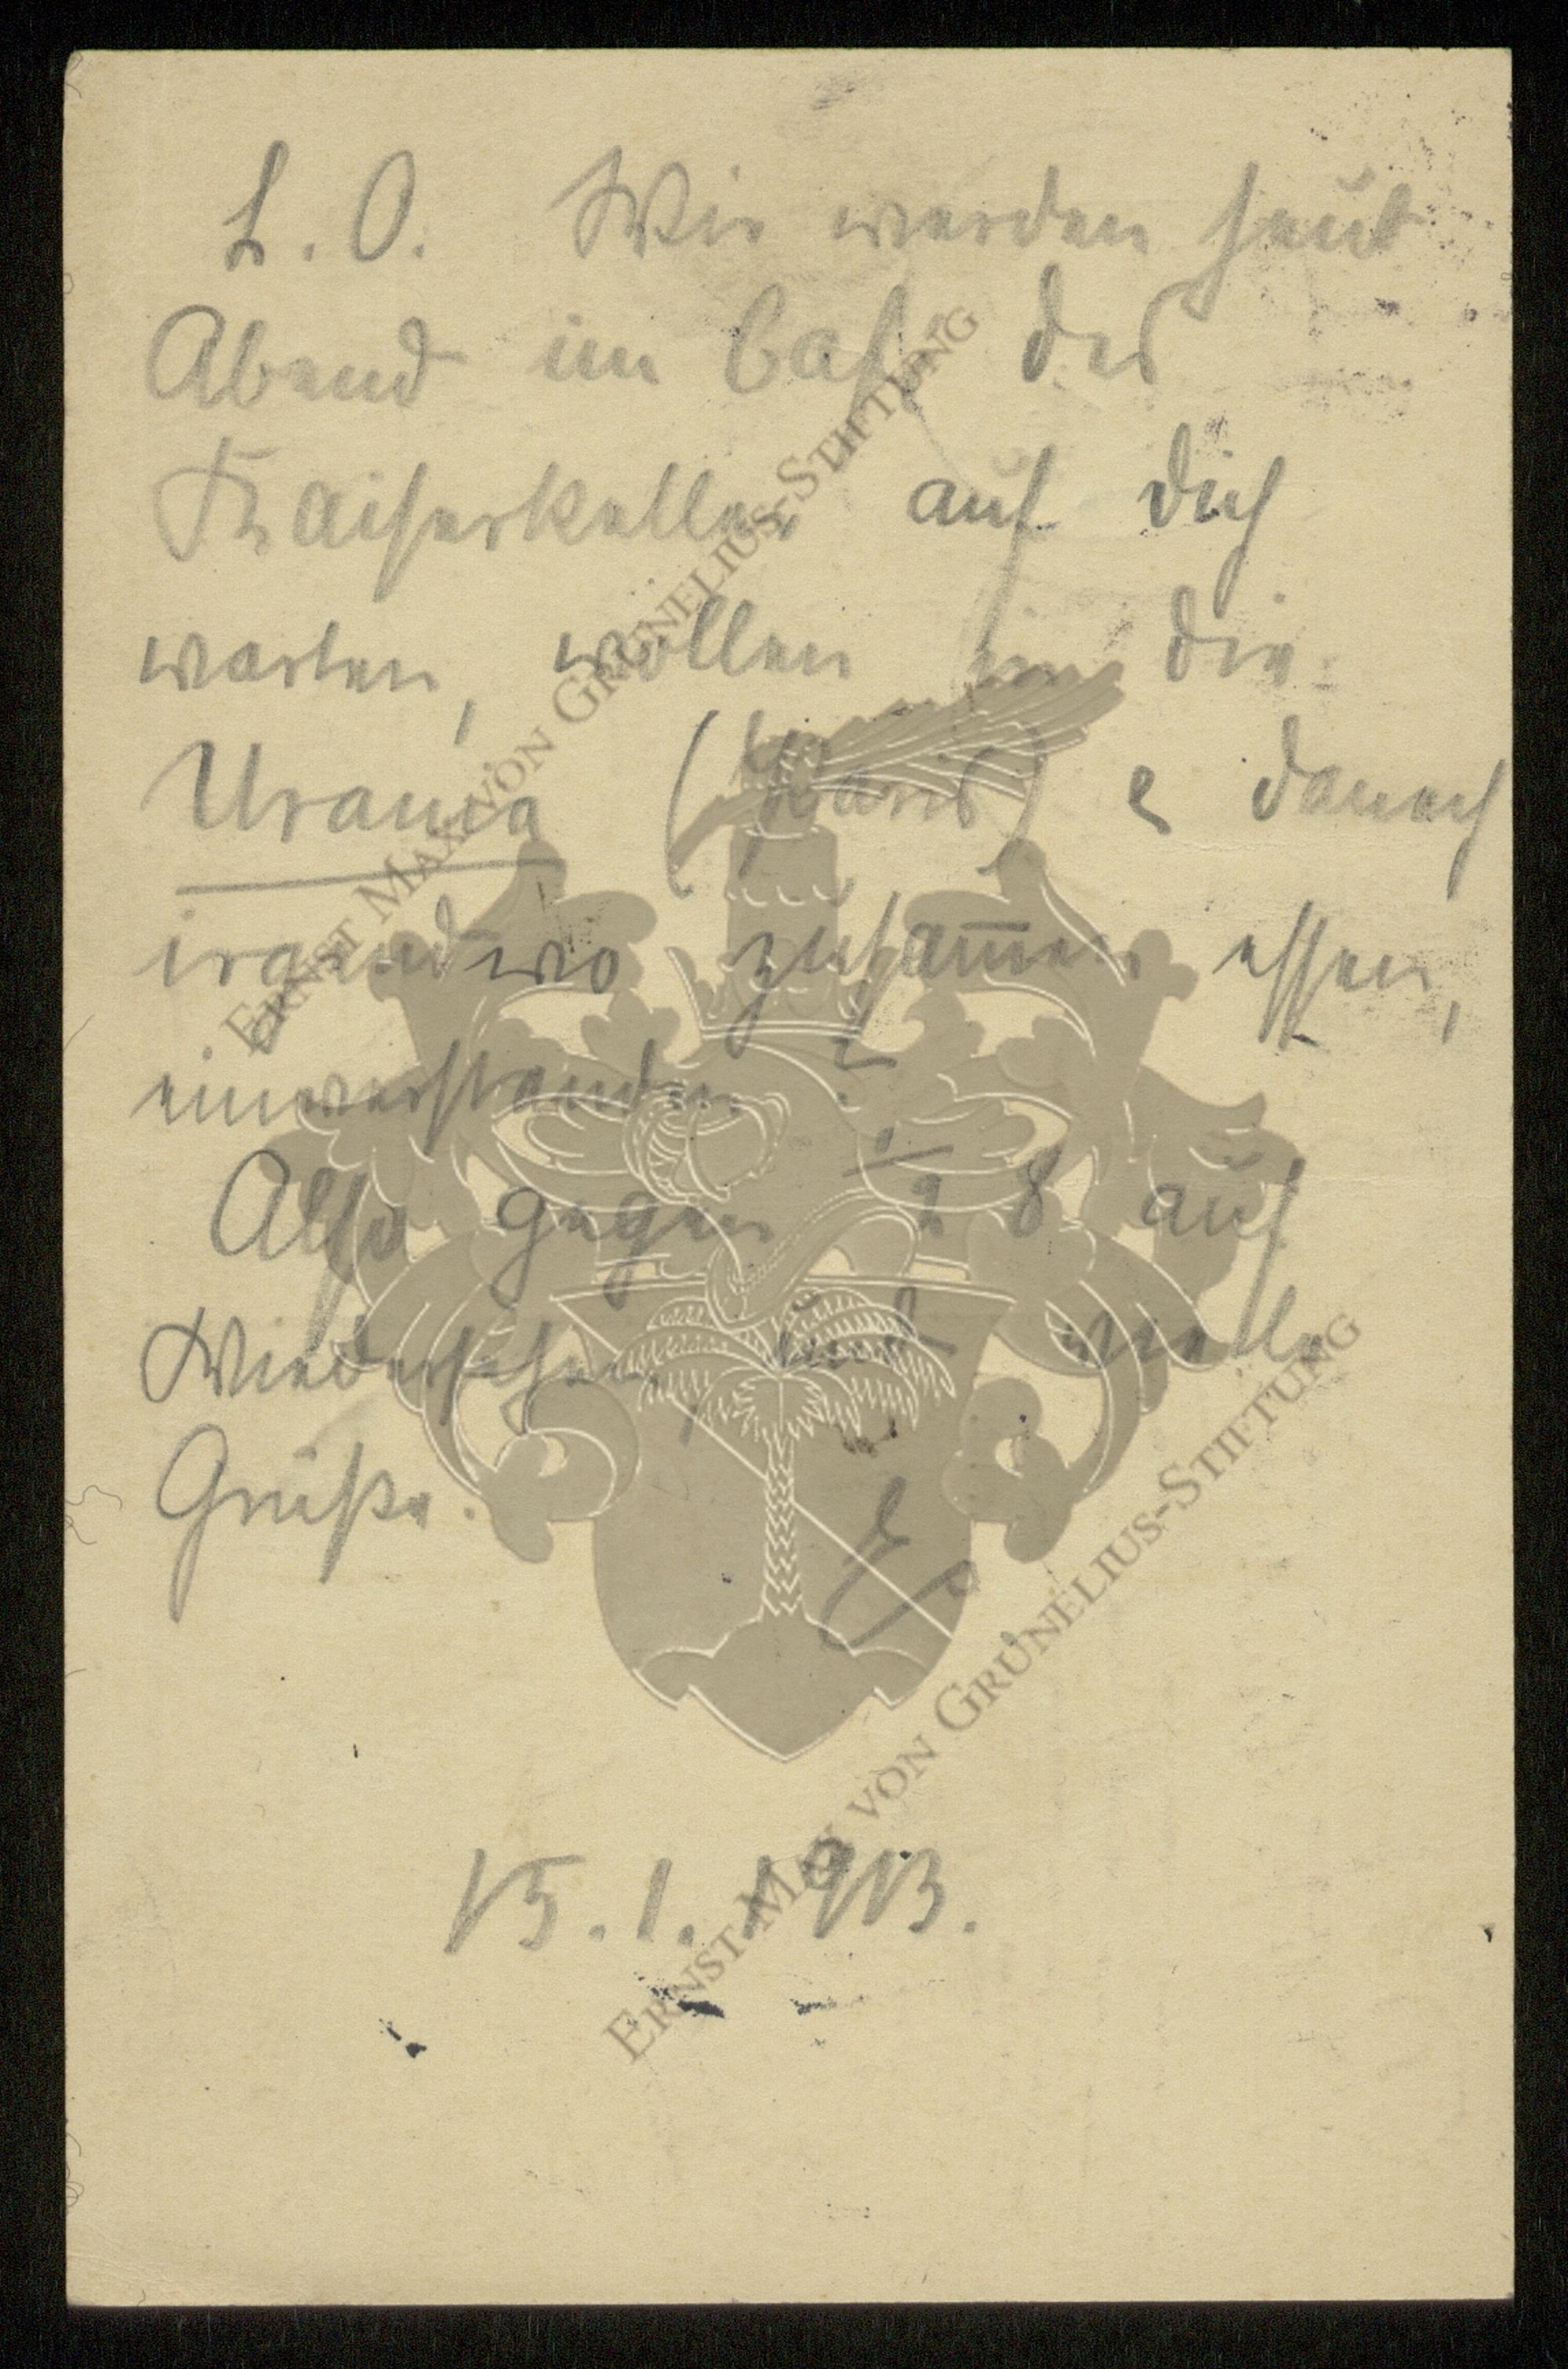 L. O. Wir werden heut
Abend im Café des
Kaiserkeller auf dich
warten, wollen in die
Urania (Paris) & danach
irgendwo zusam̅en essen,
einverstanden?
Also gegen ½ 8 auf
Wiedersehen, viele
Grüße.
E.
15.1.1913.
ERNST MAX VON GRUNELIUS-STIFTUNG
ERNST MAX VON GRUNELIUS-STIFTUNG